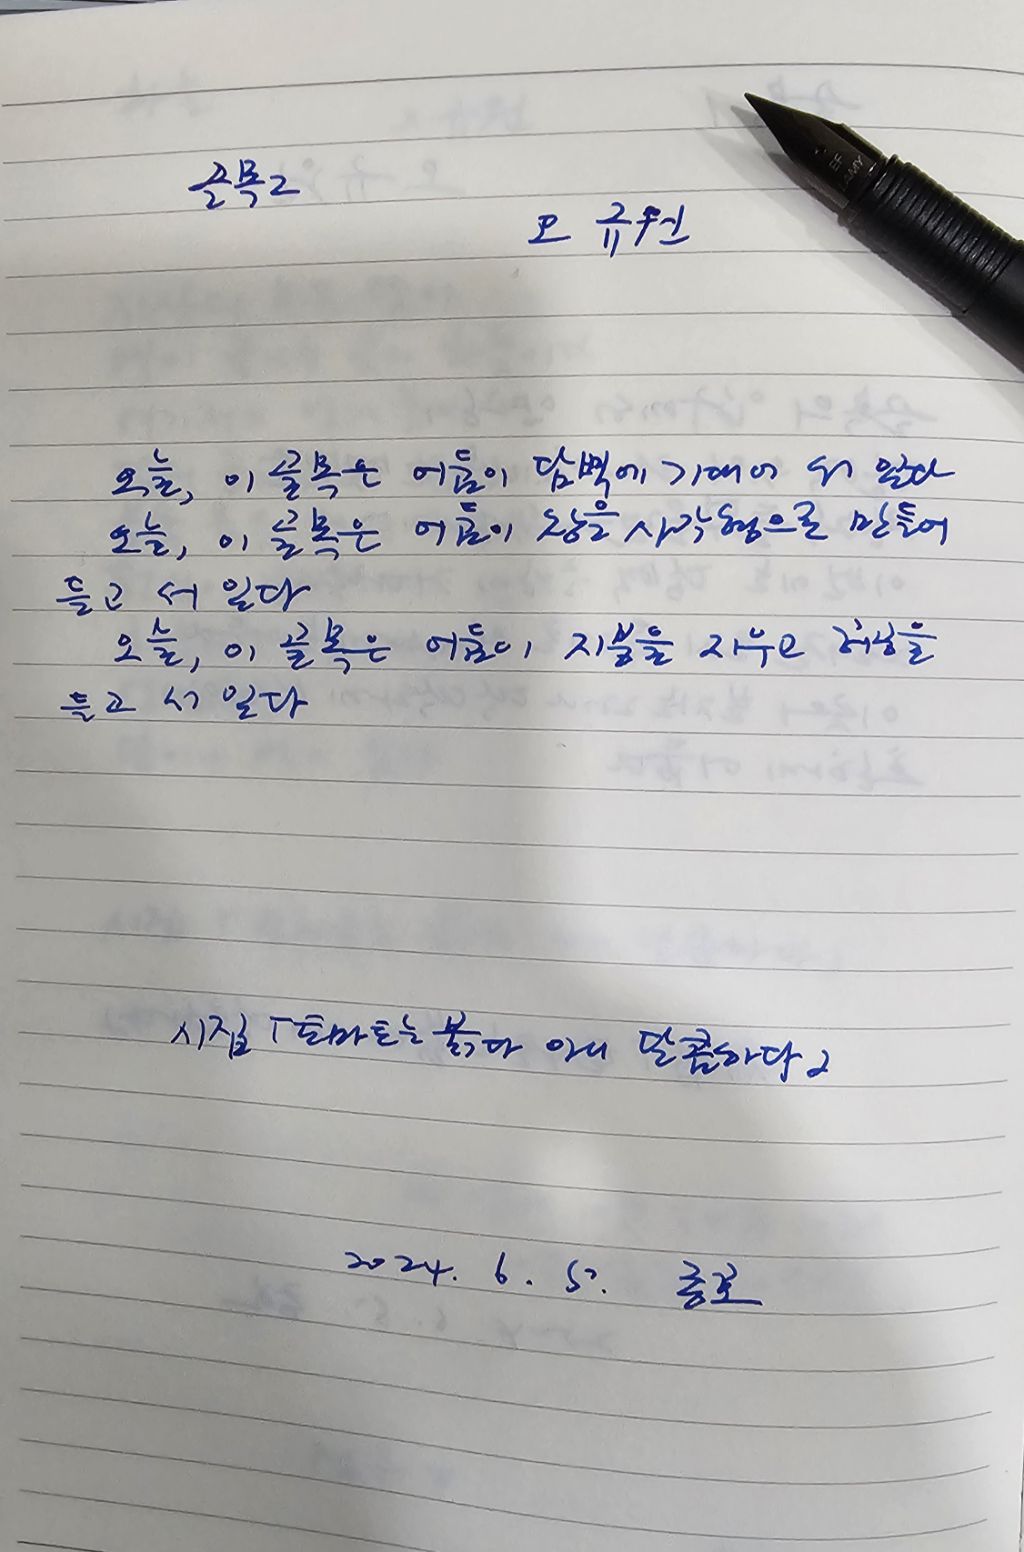 골목 2
오 규원
오늘, 이 골목은 어둠이 담벽에 기대어 서 있다
오늘, 이 골목은 어둠이 창을 사각형으로 만들어
들고 서 있다
오늘, 이 골목은 어둠이 지붕을 지우고 허공을
들고 서 있다
시집 「토마토는 붉다 아니 달콤하다」
2024. 6. 5.
EF
LAMY